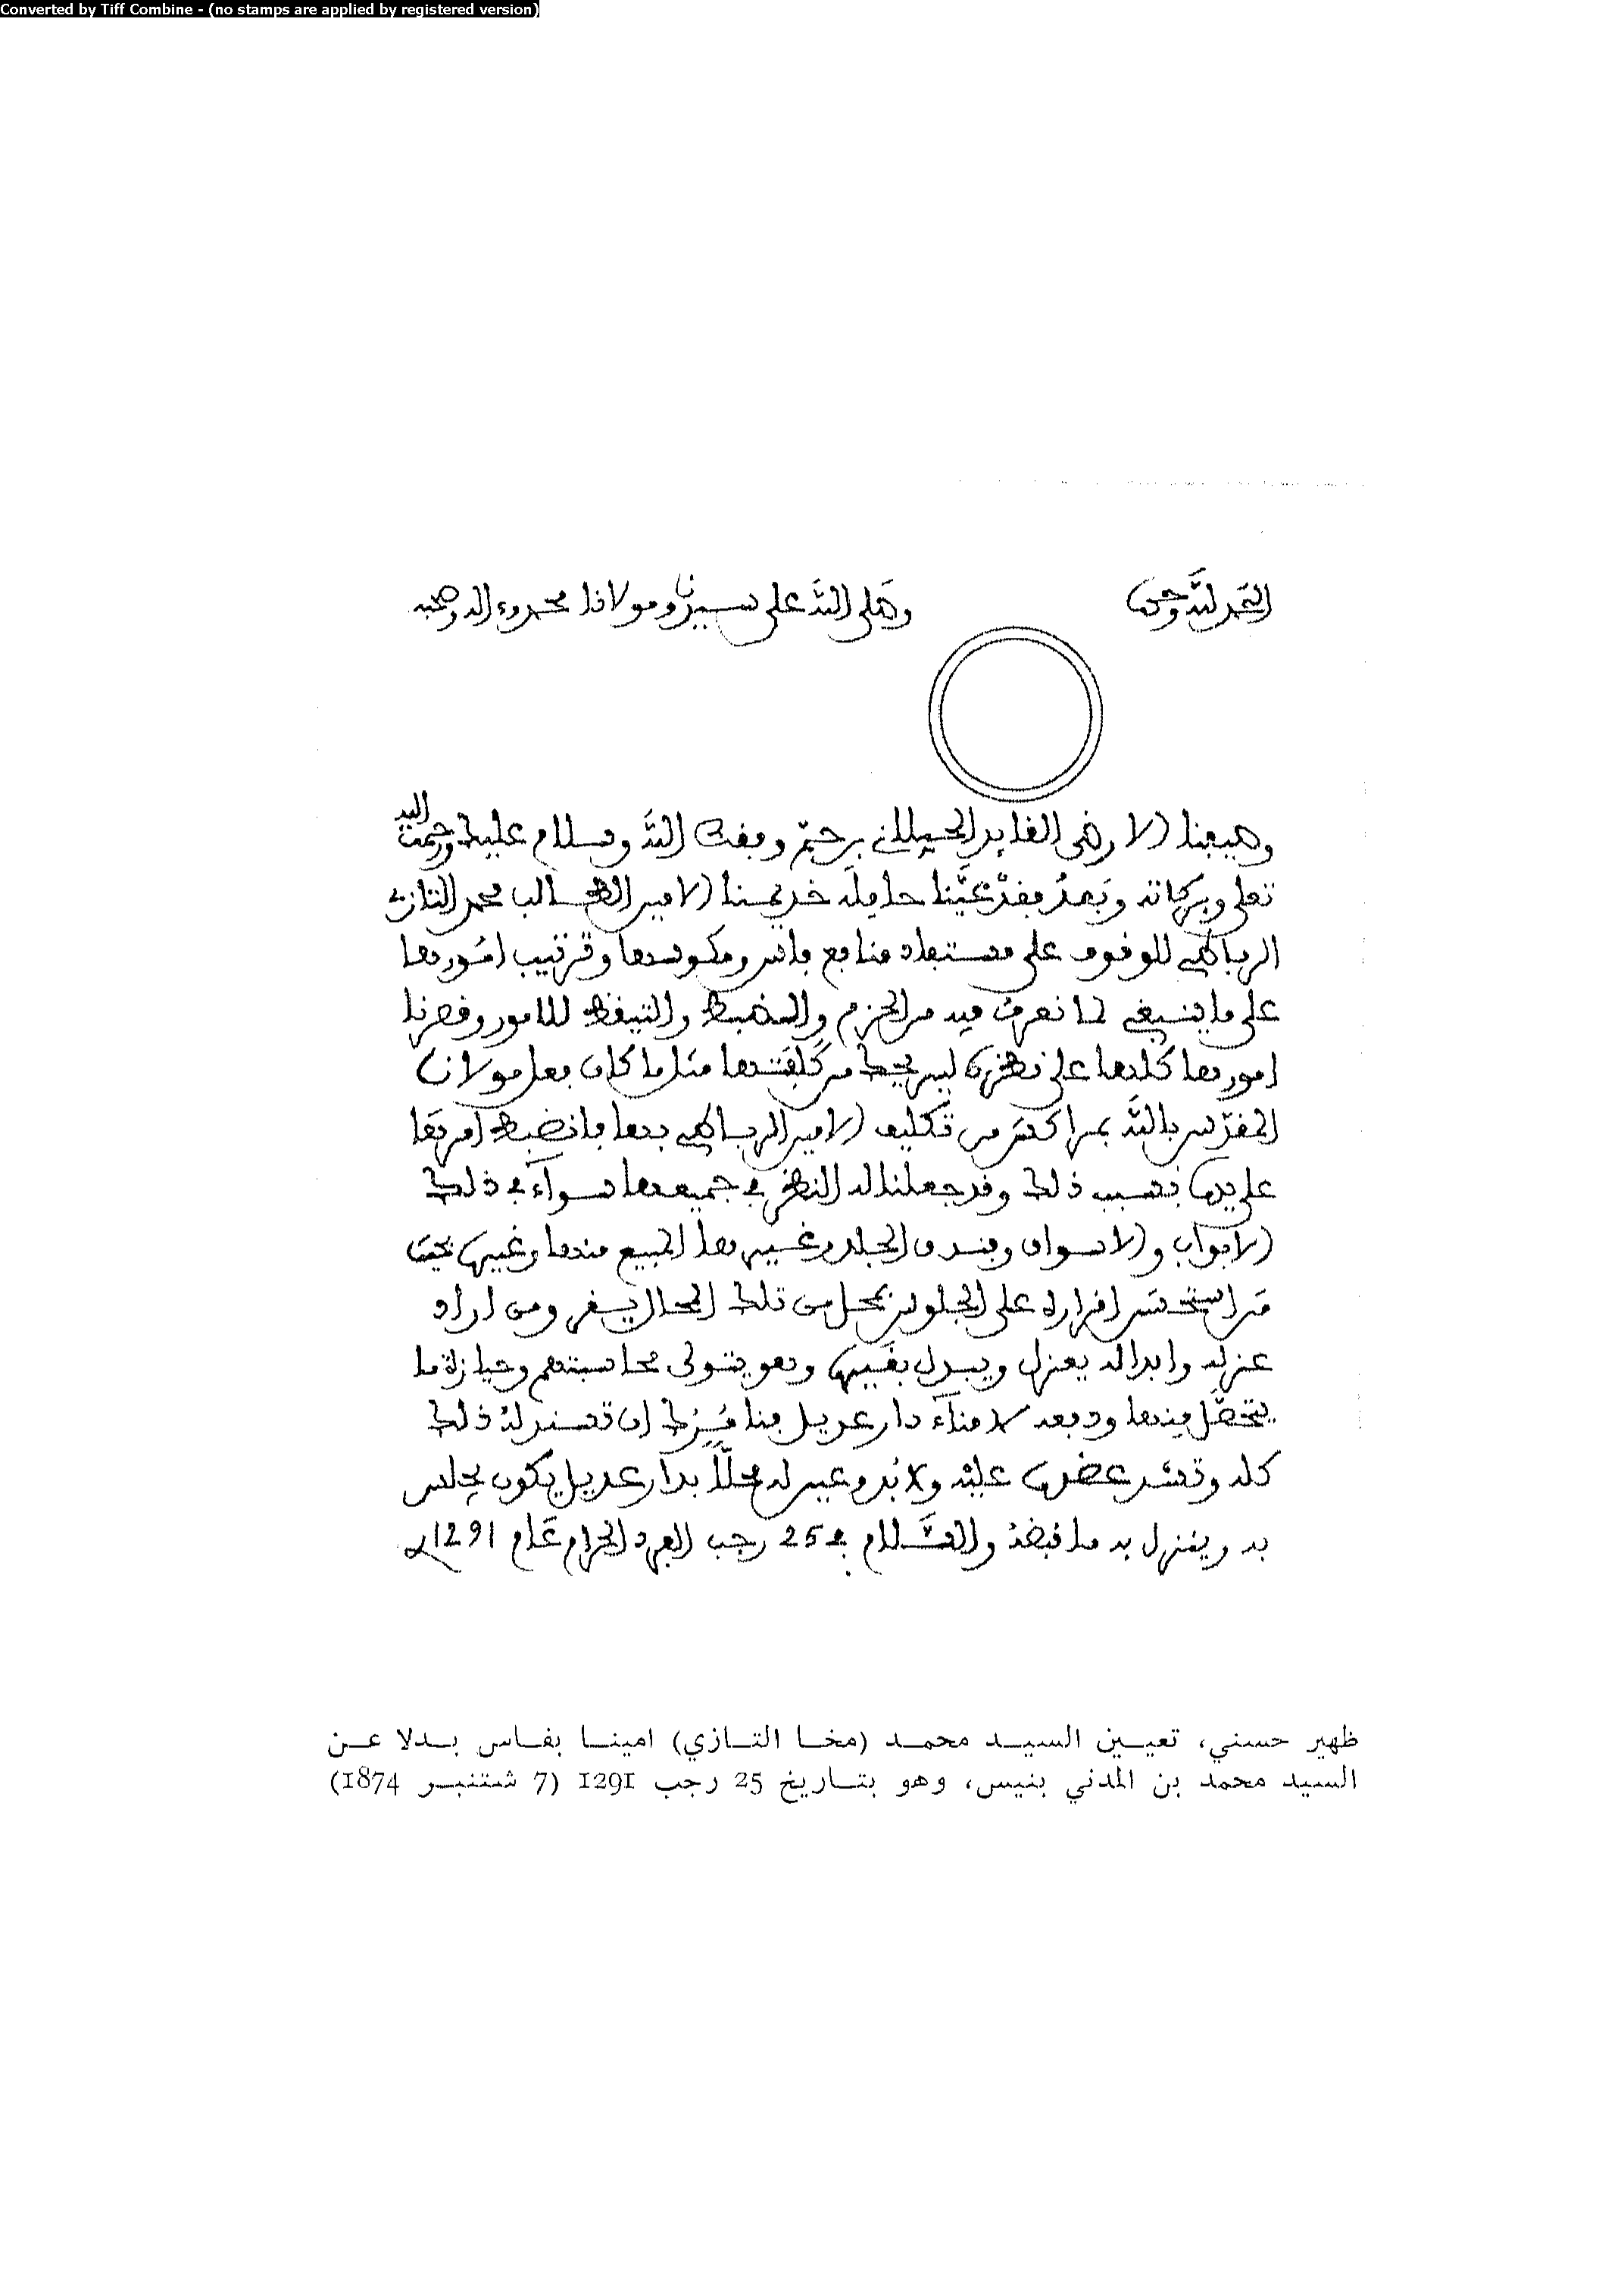 Converted by Tiff Combine - (no stamps are applied by registered version)
الحمد لله وحده
وصلى الله على سيدنا ومولانا محمد وءاله وصحبه
وصيفنا الارضى القايد الجيلاني بن حم وفقك الله وسلام عليك ورحمت الله
تعلى وبركاته وبعد فقد عينا حامله خديمنا الامين الطالب محمد التازي
الرباطي للوقوف على مستفاد منافع فاس ومكوسها وترتيب امورها
على ما ينبغي لما نعرف فيه من الحزم والضبط والتيقظ للامور وقصرنا
امورها كلها على نظره ليريحك من كلفتها مثل ما كان فعل مولانا
المقدس بالله بمراكش من تكليف الامين الرباطي بها فانضبط امرها
على يده بسبب ذلك وقد جعلنا له النظر في جميعها سواء في ذلك
الابواب والاسواق وفندق الجلد وغيرها المبيع منها وغيره بحيث
من استحسن اقراره على الجلوس بمحل من تلك المحال يقر ومن اراد
عزله وابداله يعزل ويبدل بغيره وهو يتولى محاسبتهم وحيازة ما
يتحصل منها ودفعه لامناء دار عديل فنامرك ان تسند له ذلك
كله وتشد عضده عليه ولا بد وعين له محلا بدار عديل يكون يجلس
به وينزل به ما قبضه والسلام في 25 رجب الفرد الحرام عام 1291
ظهير حسني، تعيين السيد محمد (مخا التازي) امينا بفاس بدلا عن
السيد محمد بن المدني بنيس، وهو بتاريخ 25 رجب 1291 (7 شتنبر 1874)